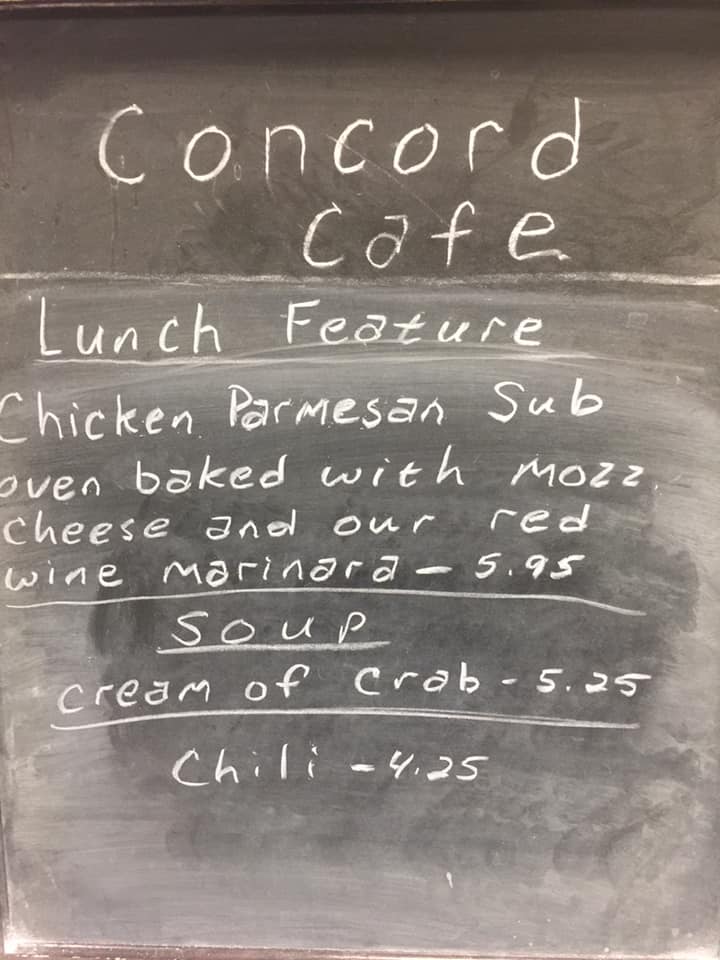 Concord
Cafe
Lunch Feature
Chicken Parmesan Sub
oven baked with mozz.
cheese and our red
wine marinara - 5.95
Soup
cream of Crab - 5.25
Chili - 4.25